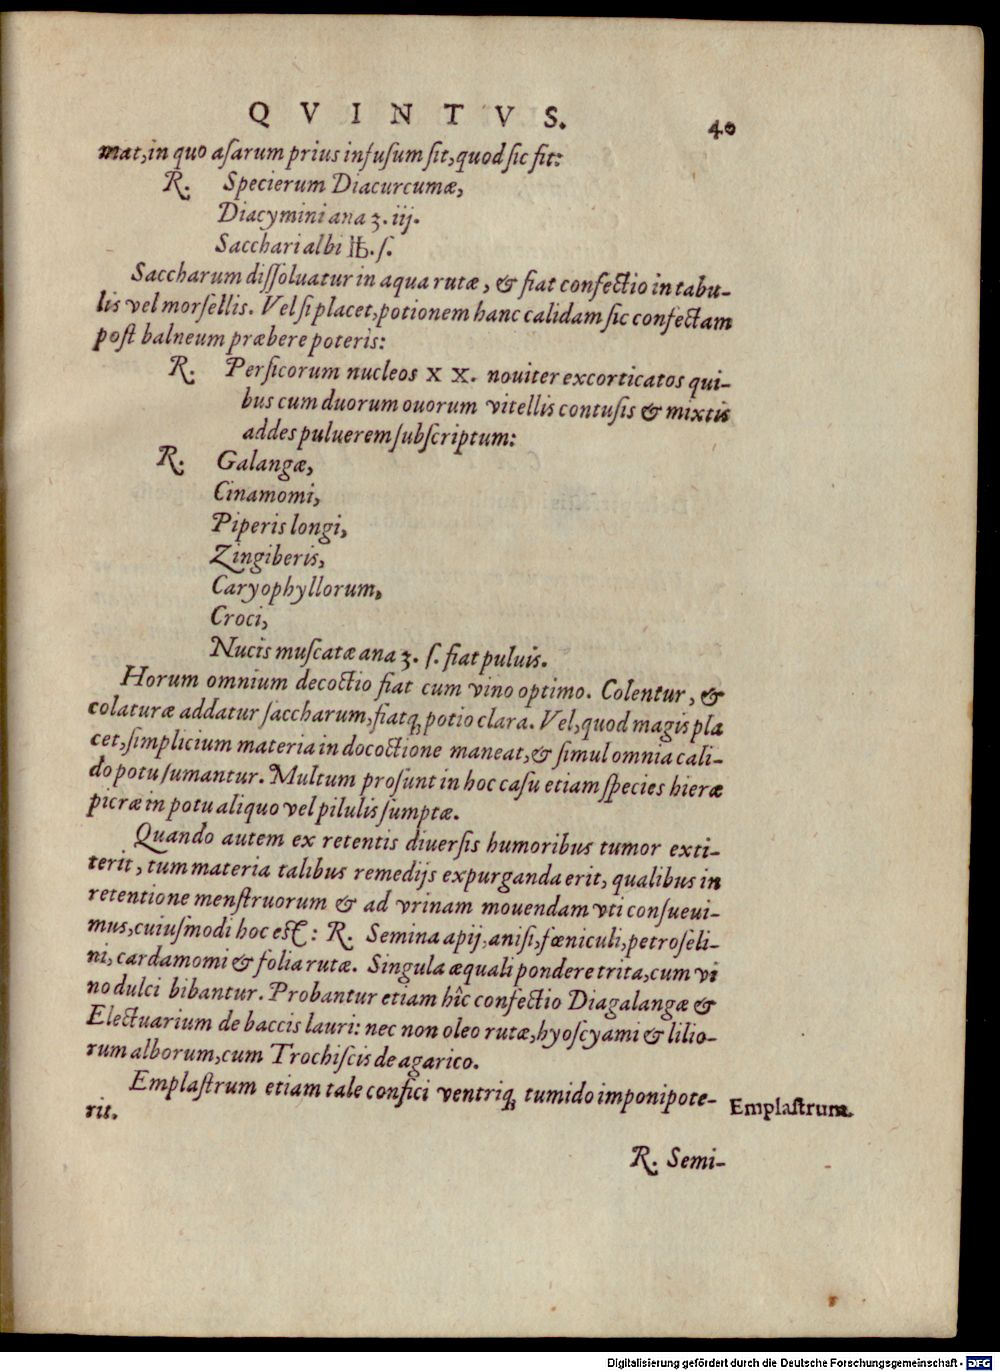 QVINTVS. 40
mat, in quo asarum prius infusum sit, quod sic fit:
R. Specierum Diacurcumæ,
Diacymini ana ʒ. iij.
Sacchari albi ℔. s.
Saccharum dissoluatur in aqua rutæ, & fiat confectio in tabu-
lis vel morsellis. Vel si placet, potionem hanc calidam sic confectam
post balneum præbere poteris:
R. Persicorum nucleos XX. nouiter excorticatos qui-
bus cum duorum ouorum vitellis contusis & mixtis
addes puluerem subscriptum:
R. Galangæ,
Cinamomi,
Piperis longi,
Zingiberis,
Caryophyllorum,
Croci,
Nucis muscatæ ana ʒ. s. fiat puluis.
Horum omnium decoctio fiat cum vino optimo. Colentur, &
colaturæ addatur saccharum, fiatq; potio clara. Vel, quod magis pla
cet, simplicium materia in dococtione maneat, & simul omnia cali-
do potu sumantur. Multum prosunt in hoc casu etiam species hieræ
picræ in potu aliquo vel pilulis sumptæ.
Quando autem ex retentis diuersis humoribus tumor exti-
terit, tum materia talibus remedijs expurganda erit, qualibus in
retentione menstruorum & ad vrinam mouendam vti consueui-
mus, cuiusmodi hoc est: R. Semina apij, anisi, fœniculi, petroseli-
ni, cardamomi & folia rutæ. Singula æquali pondere trita, cum vi
no dulci bibantur. Probantur etiam hîc confectio Diagalangæ &
Electuarium de baccis lauri: nec non oleo rutæ, hyoscyami & lilio-
rum alborum, cum Trochiscis de agarico.
Emplastrum etiam tale confici ventriq; tumido imponi pote-
rit.
Emplastrum.
R. Semi-
Digitalisierung gefördert durch die Deutsche Forschungsgemeinschaft - DFG